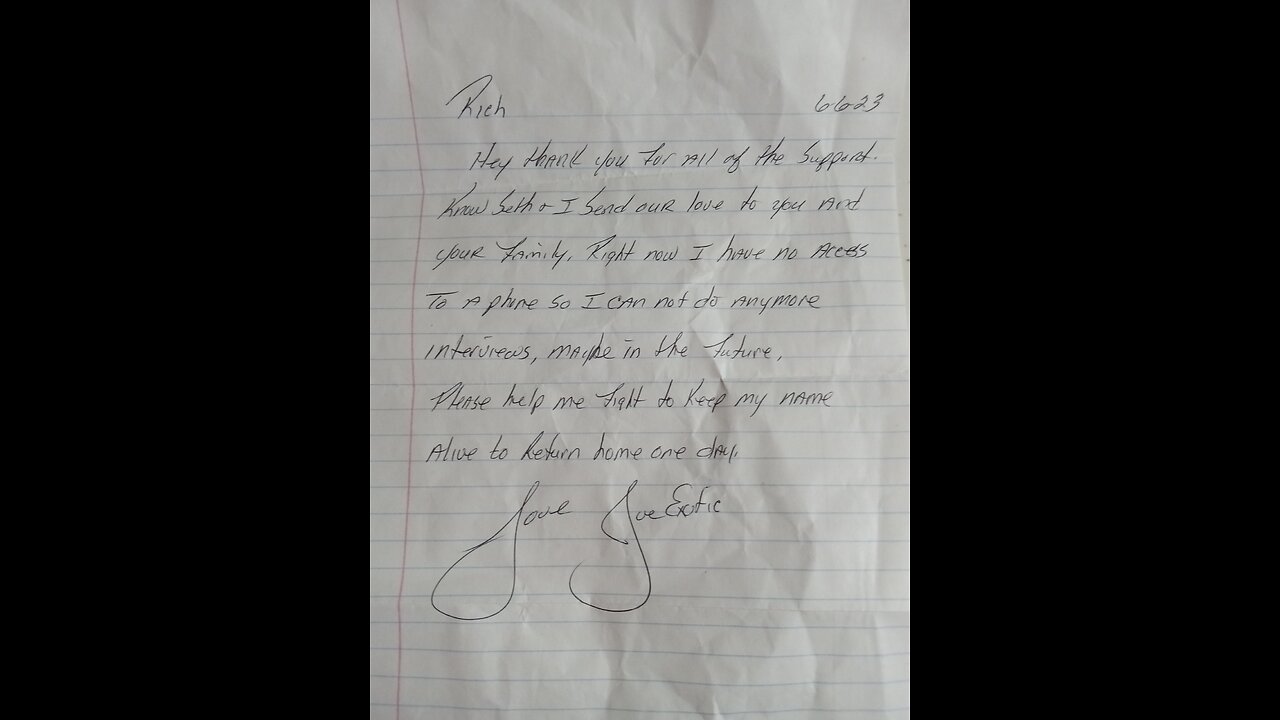 Rich 6-6-23
Hey thank you for all of the support.
Know Seth & I send our love to you and
your family. Right now I have no access
to a phone so I can not do anymore
interviews, maybe in the future,
Please help me fight to keep my name
alive to return home one day.
Love Joe Exotic